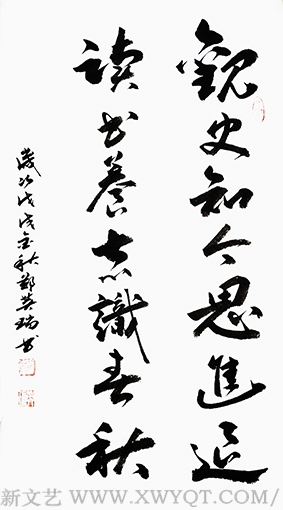 觀史知今思進退
讀书養志識春秋
歲次戊戌金秋鄭英瑞书
新文艺 WWW.XWYQT.COM/